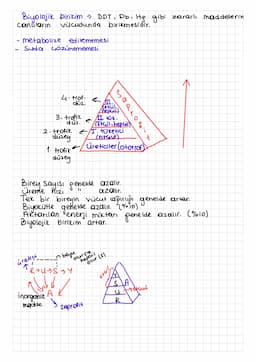 Biyolojik Birikim → DDT, Pb, Hg gibi zararlı maddelerin
canlıların vücudunda birikmesidir.
- metabolize edilememesi
- Suda çözünmemesi
4. trofik
düz.
3. trofik
düz.
2. trofik
düzey
1. trofik
düzey
II. tük.
I. tüketici
(otçul)
Üreticiler (ototrof)
Saprofit
Birey Sayısı genelde azalır.
Üreme Hızı " azalır.
Tek bir bireyin vücut ağırlığı genelde artar.
Biyokütle genelde azalır (%10)
Aktarılan enerji miktarı genelde azalır. (%10)
Biyolojik birikim artar.
inorganik
madde
saprofit
Y
S
U
R
A